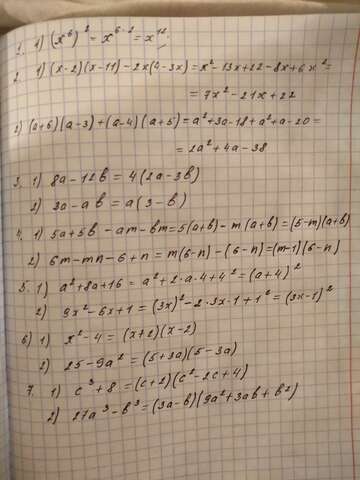 1. 1) (x⁶)² = x⁶·² = x¹².
2. 1) (x-2)(x-11)-2x(4-3x)=x²-13x+22-8x+6x²=
= 7x²-21x+22
2) (a+6)(a-3)+(a-4)(a+5)=a²+3a-18+a²+a-20=
= 2a²+4a-38
3. 1) 8a-12b=4(2a-3b)
2) 3a-ab=a(3-b)
4. 1) 5a+5b-am-bm=5(a+b)-m(a+b)=(5-m)(a+b)
2) 6m-mn-6+n=m(6-n)-(6-n)=(m-1)(6-n)
5. 1) a²+8a+16=a²+2·a·4+4²=(a+4)²
2) 9x²-6x+1=(3x)²-2·3x·1+1²=(3x-1)²
6) 1) x²-4=(x+2)(x-2)
2) 25-9a²=(5+3a)(5-3a)
7. 1) c³+8=(c+2)(c²-2c+4)
2) 27a³-b³=(3a-b)(9a²+3ab+b²)